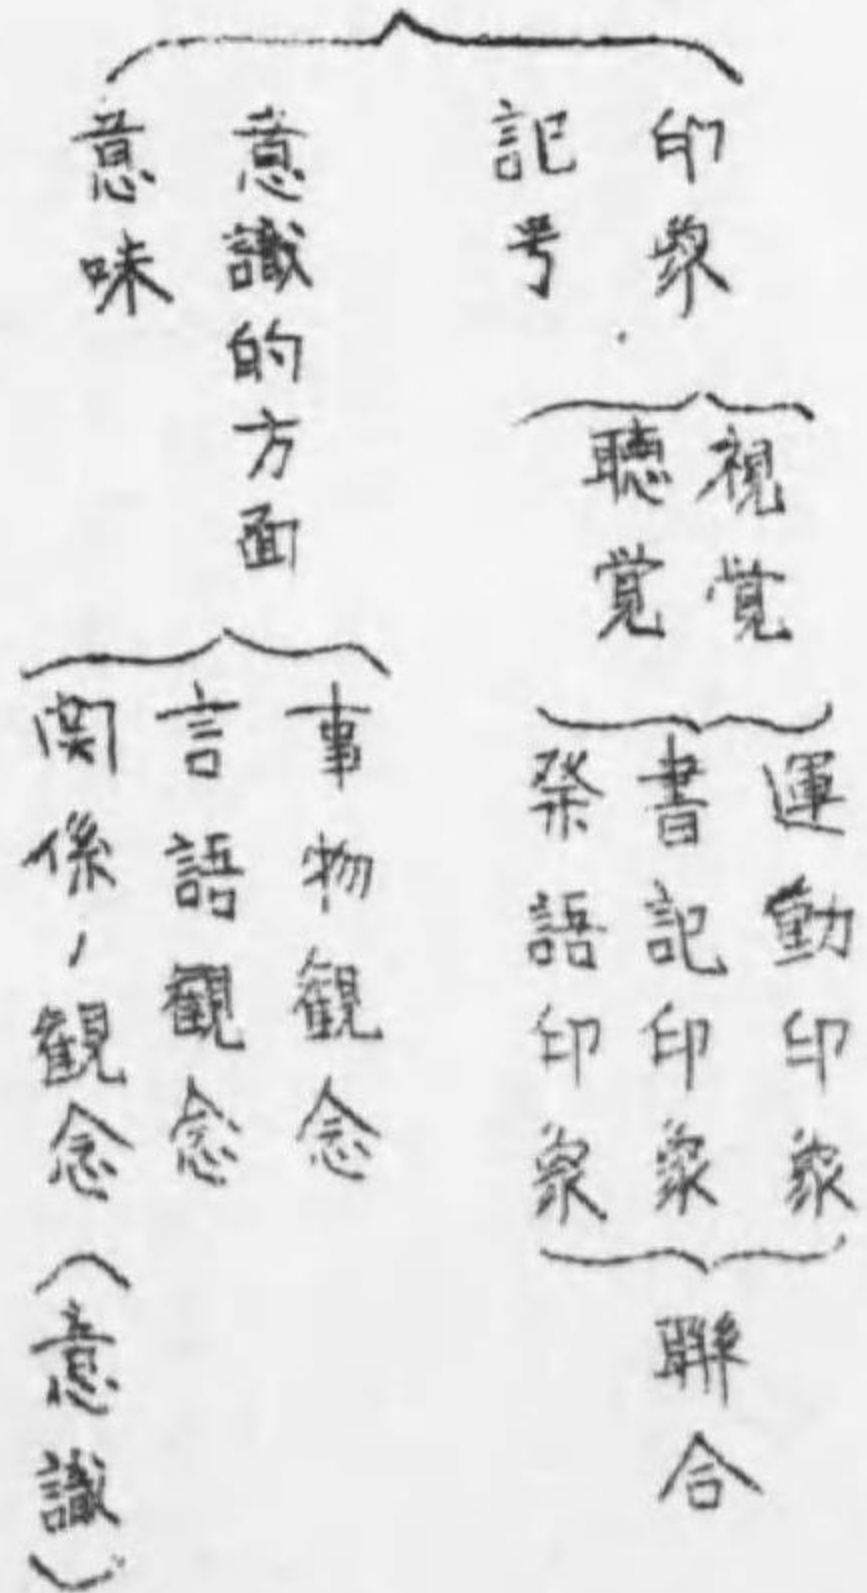 印象
記号
視覚
聴覚
運動印象
書記印象
発語印象
聯合
意識的方面
意味
事物観念
言語観念
関係ノ観念(意識)